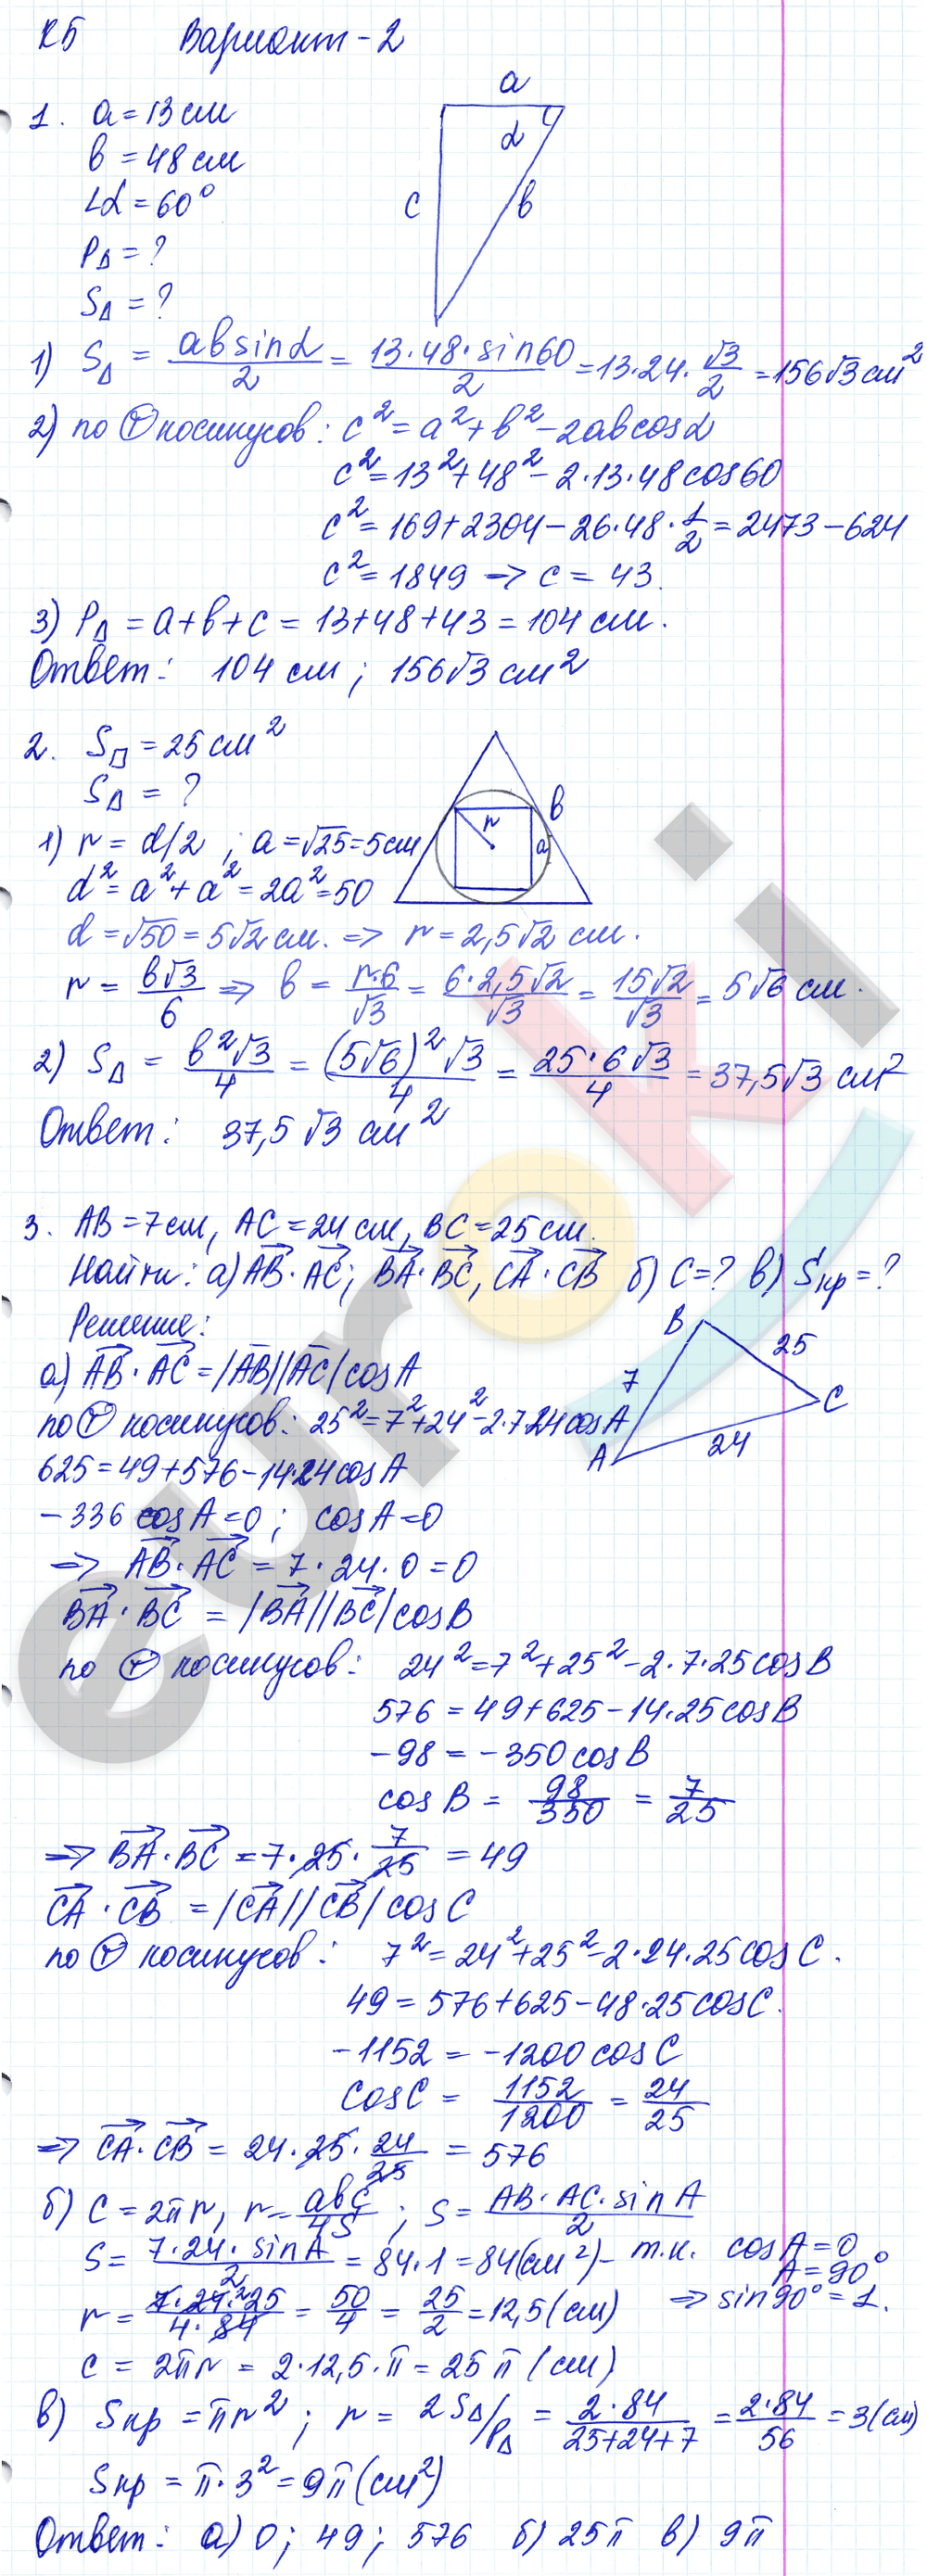 КБ Вариант-2
a
1. a = 13 см
b = 48 см
∠α = 60°
α
c
b
P∆ = ?
S∆ = ?
1) S∆ = ab sinα / 2 = 13·48·sin60 / 2 = 13·24·√3/2 = 156√3 см²
2) по Ⓣ косинусов: c² = a² + b² - 2ab cosα
c² = 13² + 48² - 2·13·48 cos60
c² = 169 + 2304 - 26·48·1/2 = 2473 - 624
c² = 1849 → c = 43.
3) P∆ = a + b + c = 13 + 48 + 43 = 104 см.
Ответ: 104 см; 156√3 см²
2. S□ = 25 см²
S∆ = ?
b
r
a
1) r = d/2; a = √25 = 5 см
d² = a² + a² = 2a² = 50
d = √50 = 5√2 см. ⇒ r = 2,5√2 см.
r = b√3 / 6 ⇒ b = r·6 / √3 = 6·2,5√2 / √3 = 15√2 / √3 = 5√6 см.
2) S∆ = b²√3 / 4 = (5√6)²√3 / 4 = 25·6√3 / 4 = 37,5√3 см²
Ответ: 37,5√3 см²
3. AB = 7 см, AC = 24 см, BC = 25 см.
Найти: а) AB·AC; BA·BC, CA·CB б) C = ? в) Sкр = ?
Решение:
B
25
7
C
24
A
а) AB·AC = |AB||AC| cosA
по Ⓣ косинусов: 25² = 7² + 24² - 2·7·24 cosA
625 = 49 + 576 - 14·24 cosA
- 336 cosA = 0; cosA = 0
⇒ AB·AC = 7·24·0 = 0
BA·BC = |BA||BC| cosB
по Ⓣ косинусов: 24² = 7² + 25² - 2·7·25 cosB
576 = 49 + 625 - 14·25 cosB
-98 = -350 cosB
cosB = 98/350 = 7/25
⇒ BA·BC = 7·25·7/25 = 49
CA·CB = |CA||CB| cosC
по Ⓣ косинусов: 7² = 24² + 25² - 2·24·25 cosC.
49 = 576 + 625 - 48·25 cosC.
-1152 = -1200 cosC
cosC = 1152/1200 = 24/25
⇒ CA·CB = 24·25·24/25 = 576
б) C = 2πr, r = abc / 4S; S = AB·AC·sinA / 2
S = 7·24·sinA / 2 = 84·1 = 84 (см²) - т.к. cosA = 0
A = 90°
⇒ sin90° = 1.
r = 7·24·²25 / 4·84 = 50/4 = 25/2 = 12,5 (см)
c = 2πr = 2·12,5·π = 25π (см)
в) Sкр = πr²; r = 2S∆/P∆ = 2·84 / 25+24+7 = 2·84 / 56 = 3 (см)
Sкр = π·3² = 9π (см²)
Ответ: а) 0; 49; 576 б) 25π в) 9π
euroki